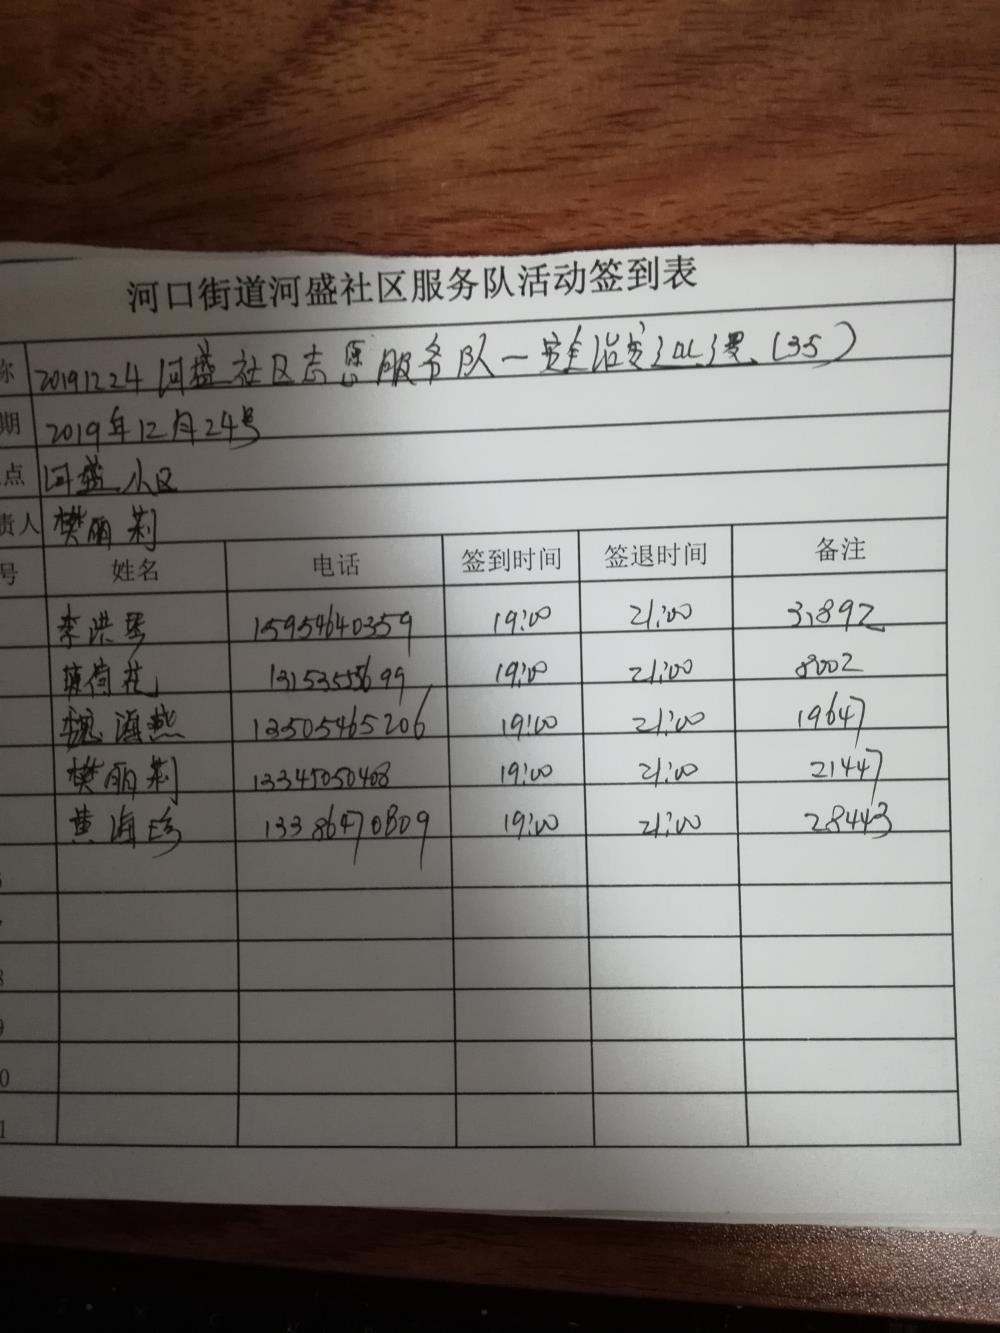 河口街道河盛社区服务队活动签到表
称 20191224河盛社区志愿服务队一安全治安巡逻(35)
期 2019年12月24号
点 河盛小区
责人 樊丽莉
号 姓名 电话 签到时间 签退时间 备注
李洪琴 15954640359 19:00 21:00 31892
荷花 13153555699 19:00 21:00 8002
魏海燕 13505465206 19:00 21:00 19647
樊丽莉 13345050408 19:00 21:00 21447
黄海珍 13386470809 19:00 21:00 28443
8
9
0
1